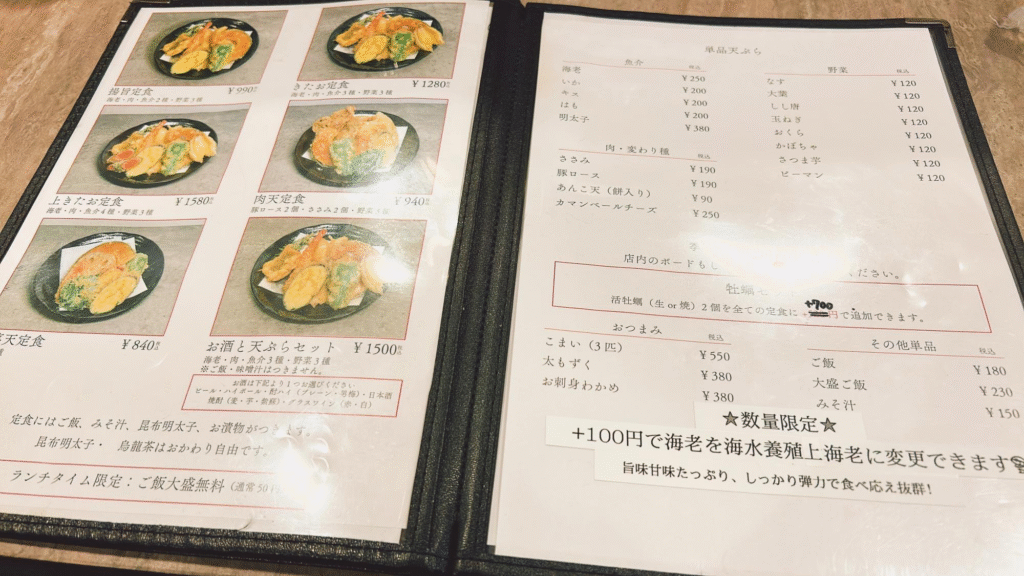 揚旨定食 ¥990
海老・肉・魚介2種・野菜3種
きたお定食 ¥1280
海老・肉・魚介3種・野菜3種
上きたお定食 ¥1580
海老・肉・魚介4種・野菜3種
肉天定食 ¥940
豚ロース2個・ささみ2個・野菜3種
天定食 ¥840
お酒と天ぷらセット ¥1500
海老・肉・魚介3種・野菜3種
※ご飯・味噌汁はつきません。
お酒は下記より1つお選びください
ビール・ハイボール・酎ハイ(プレーン・
・日本酒
焼酎(麦・芋・紫蘇)・グラスワイン(赤・白)
定食にはご飯、みそ汁、お漬物がつきます。
昆布明太子・ 烏龍茶はおかわり自由です。
ランチタイム限定:ご飯大盛無料(通常50円
単品天ぷら
魚介 税込
海老 ¥250
いか ¥200
キス ¥200
はも ¥200
明太子 ¥380
肉・変わり種 税込
ささみ ¥190
豚ロース ¥190
あんこ天(餅入り) ¥90
カマンベールチーズ ¥250
野菜 税込
なす ¥120
大葉 ¥120
しし唐 ¥120
玉ねぎ ¥120
おくら ¥120
かぼちゃ ¥120
さつま芋 ¥120
ピーマン ¥120
季
店内のボードもし
ください。
牡蠣
+700
活牡蠣(生or焼)2個を全ての定食に
円で追加できます。
おつまみ 税込
こまい(3匹) ¥550
太もずく ¥380
お刺身わかめ ¥380
その他単品 税込
ご飯 ¥180
大盛ご飯 ¥230
みそ汁 ¥150
★数量限定★
+100円で海老を海水養殖上海老に変更できます
旨味甘味たっぷり、しっかり弾力で食べ応え抜群!